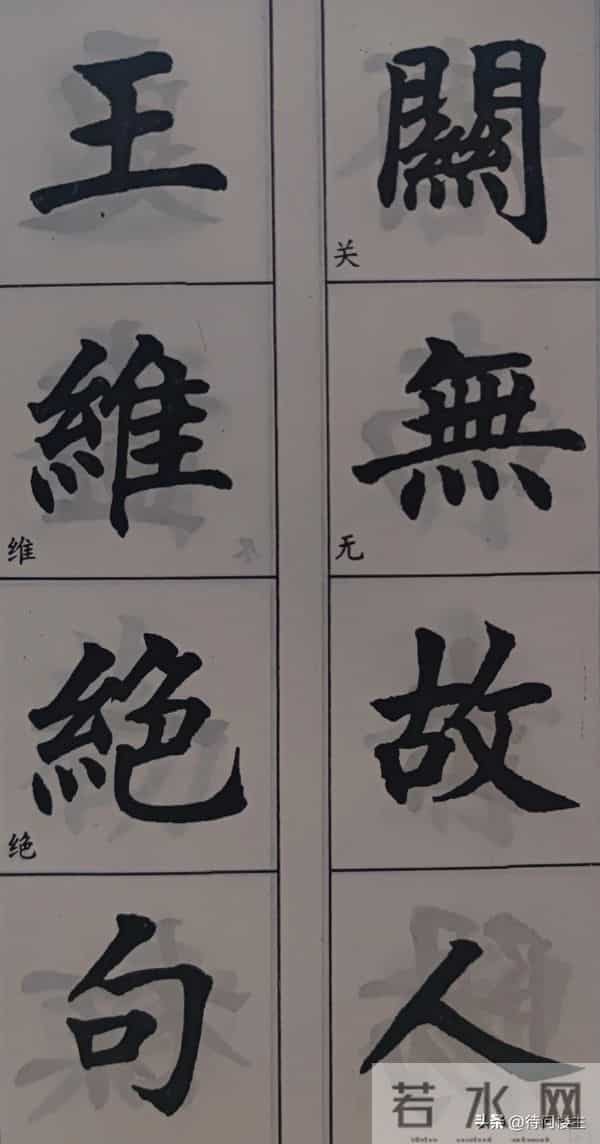 關無故人
关
无
王維絕句
维
绝
尽
若水网
头条 @待问楼主